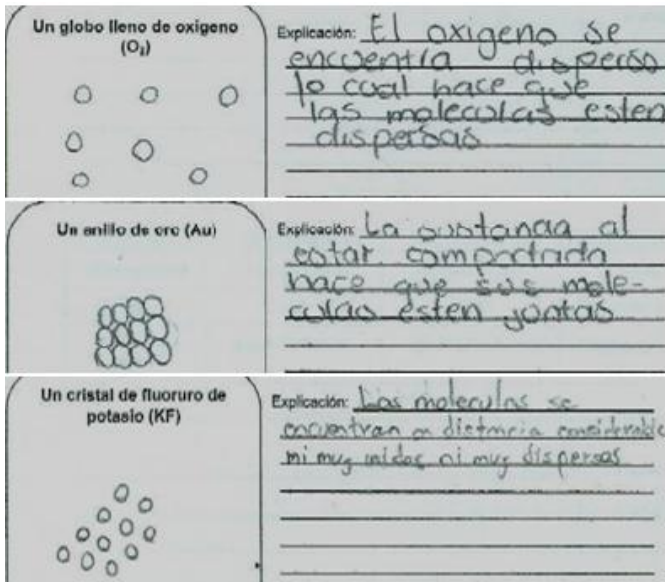 Un globo lleno de oxigeno
(O₂)
Explicación: El oxigeno se
encuentra disperso
lo cual hace que
las moleculas esten
dispersas
Un anillo de oro (Au)
Explicación: La sustancia al
estar compactada
hace que sus mole-
culas esten juntas
Un cristal de fluoruro de
potasio (KF)
Explicación: Las moleculas se
encuentran a distancia considerable
ni muy unidas ni muy dispersas